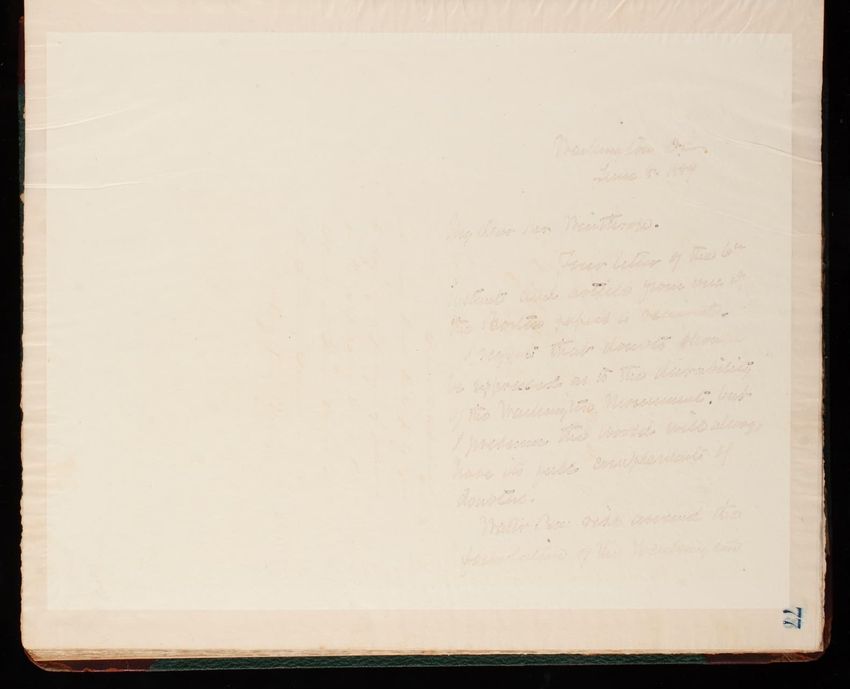 Washington D.C.
June 8. 1884
My dear Mr Winthrop.
Your letter of the 6th
instant and article from one of
the Boston papers is received.
I regret that doubts should
be expressed as to the durability
of the Washington Monument, but
I presume the world will always
have its full complement of
doubters.
Water has risen around the
foundation of the Washington
77